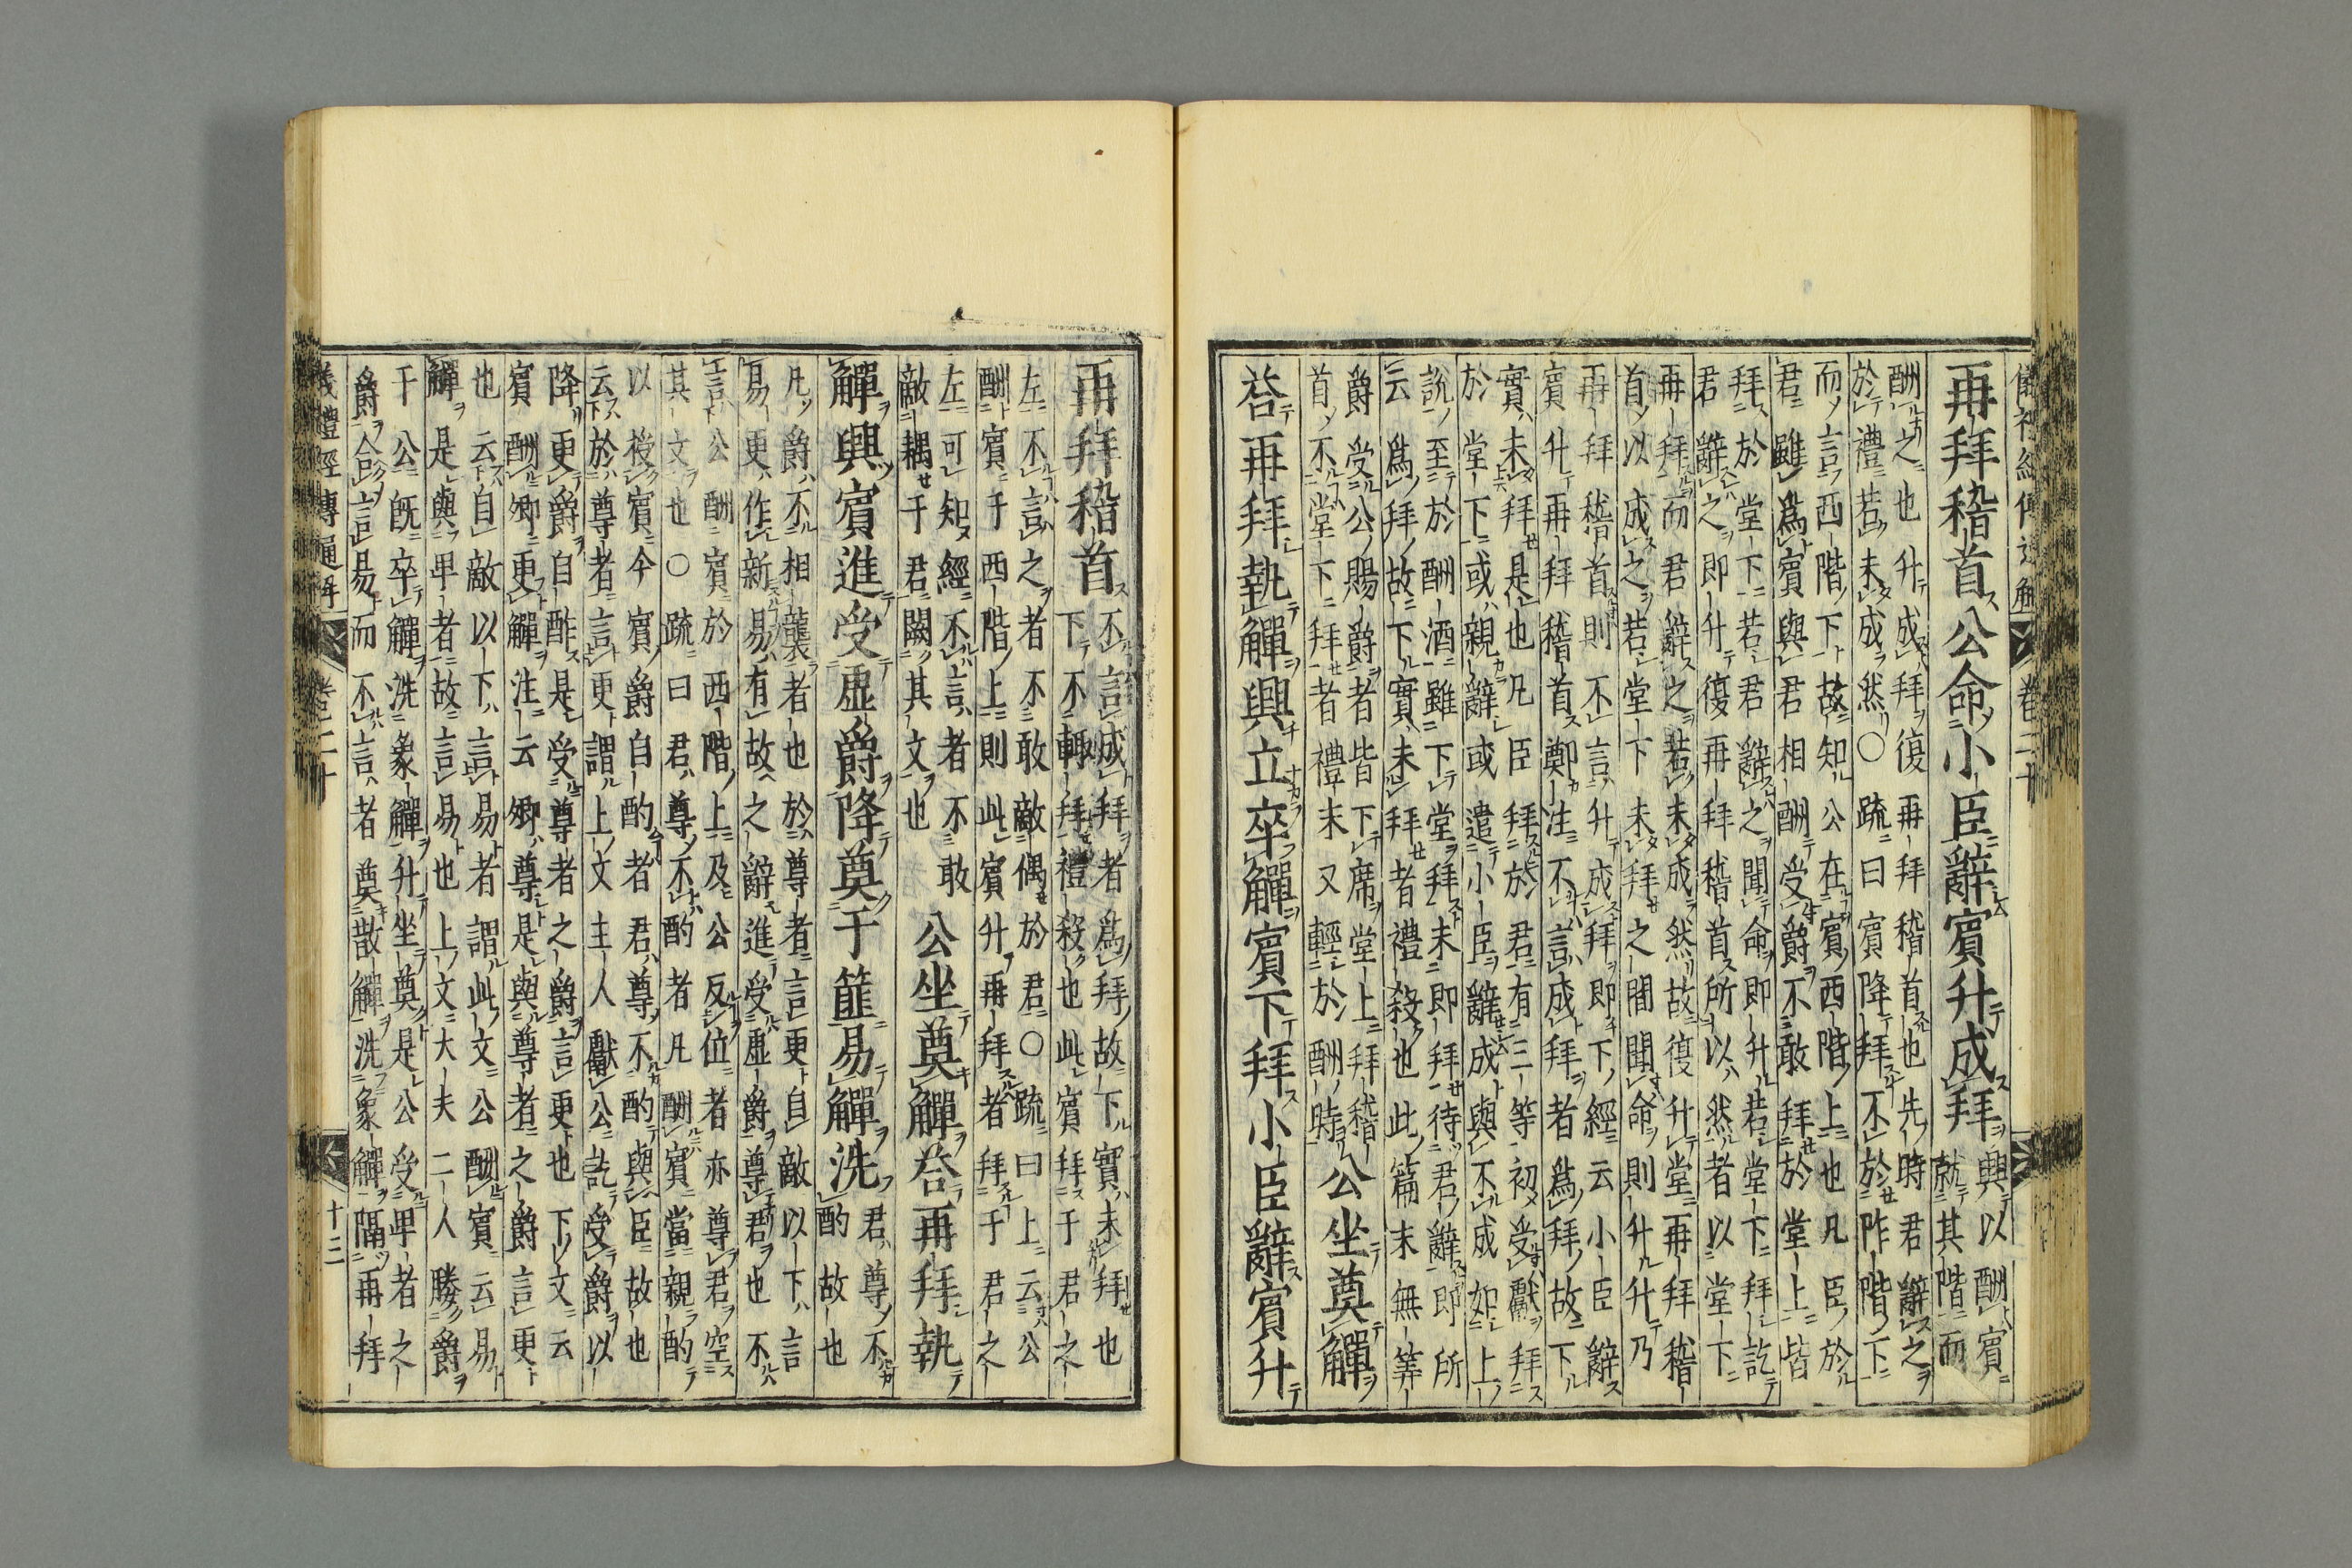 儀禮經傳通解 卷二十
再拜稽首公命小臣辭賓升成拜興以酬賓
就其階而
酬之也升成拜復再拜稽首也先時君辭之
於禮若未成然○疏曰賓降拜不於阼階下
而言西階下故知公在賓西階上也凡臣於
君雖爲賓與君相酬受爵不敢拜於堂上皆
拜於堂下若君辭之聞命即升若堂下拜訖
君辭之即升復再拜稽首所以然者以堂下
再拜而君辭之若未成然故復升堂再拜稽
首以成之若堂下未拜之間聞命則升升乃
再拜稽首則不言升成拜即下經云小臣辭
賓升再拜稽首鄭注不言成拜者爲拜故下
實未拜是也凡臣拜於君有三等初受獻拜
於堂下或親辭或遣小臣辭成與不成如上
說至於酬酒雖下堂拜未即拜待君辭即所
云爲拜故下實未拜者禮殺也此篇末無筭
爵受公賜爵者皆下席堂上拜稽
首不堂下拜者禮末又輕於酬時
公坐奠觶
荅再拜執觶興立卒觶賓下拜小臣辭賓升
再拜稽首不言成拜者爲拜故下實未拜也
下不輙拜禮殺也此賓拜于君之
左不言之者不敢敵偶於君○疏曰上云公
酬賓于西階上則此賓升再拜者拜于君之
左可知經不言者不敢
敵耦于君闕其文也
公坐奠觶荅再拜執
觶興賓進受虛爵降奠于篚易觶洗君尊不
酌故也
凡爵不相襲者也於尊者言更自敵以下言
易更作新易有故之辭進受虛爵尊君也不
言公酬賓於西階上及公反位者亦尊君空
其文也○疏曰君尊不酌者凡酬賓當親酌
以授賓今賓爵自酌者君尊不酌與臣故也
云於尊者言更謂上文主人獻公訖受爵以
降更爵自酢是受尊者之爵言更也下文云
賓酬卿更觶注云卿尊是與尊者之爵言更
也云自敵以下言易者謂此文公酬賓云易
觶是與卑者故言易也上文大夫二人媵爵
于公既卒觶洗象觶升坐奠是公受卑者之
爵合言易而不言者奠散觶洗象觶隔再拜
儀禮經傳通解 卷二十 十三